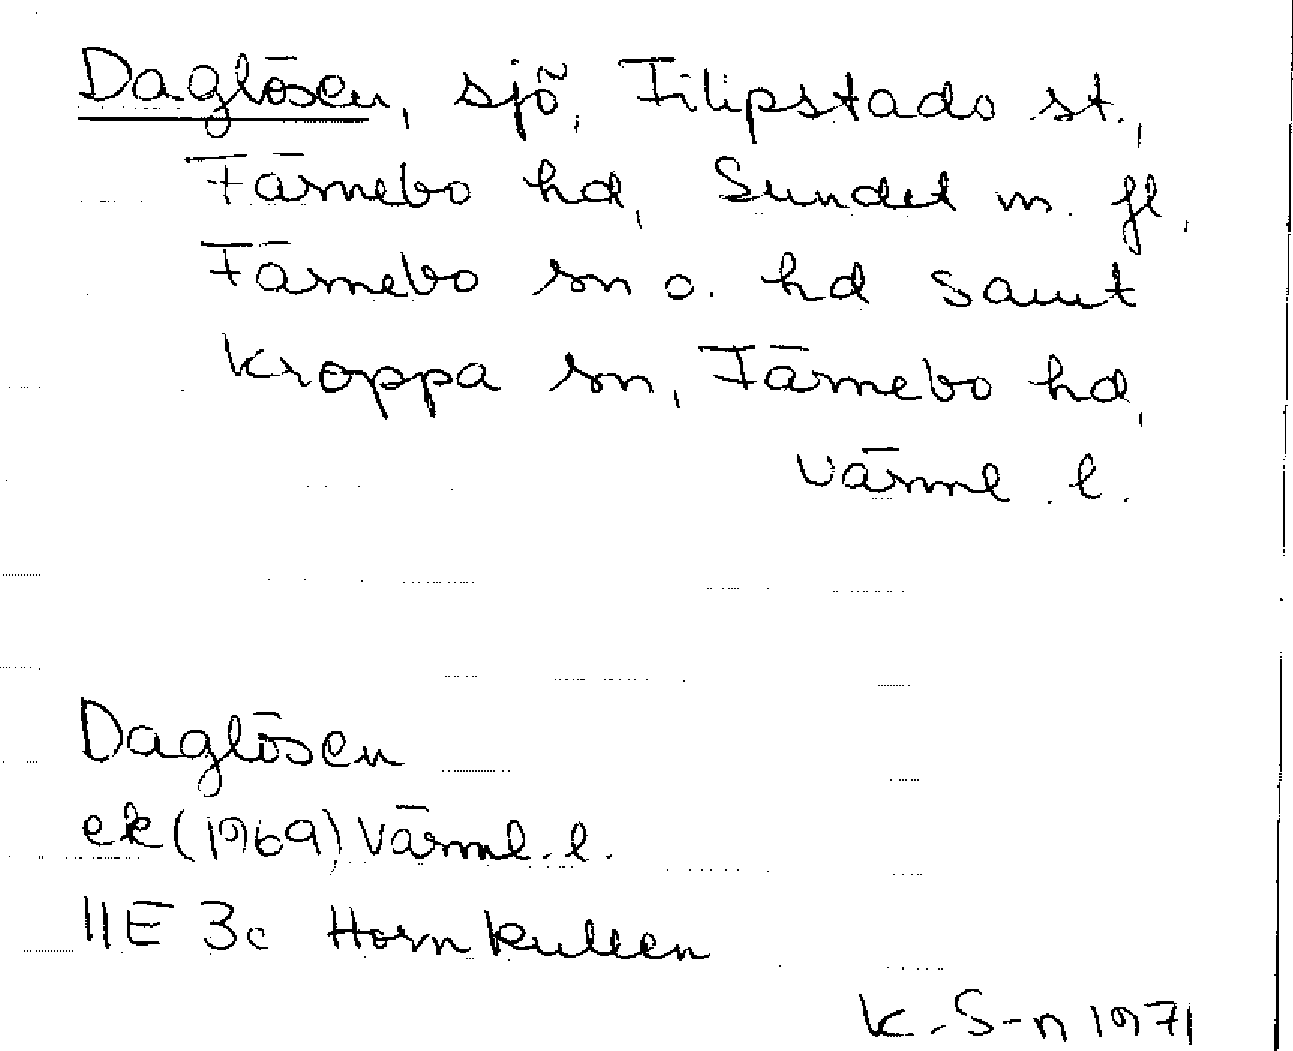 Daglösen, sjö, Filipstads st.,
Färnebo hd, Sundet m. fl,
Färnebo sn o. hd samt
Kroppa sn, Färnebo hd,
Värml. l.
Daglösen
ek (1969) Värml. l.
11E 3c Hornkullen
K. S-n 1971